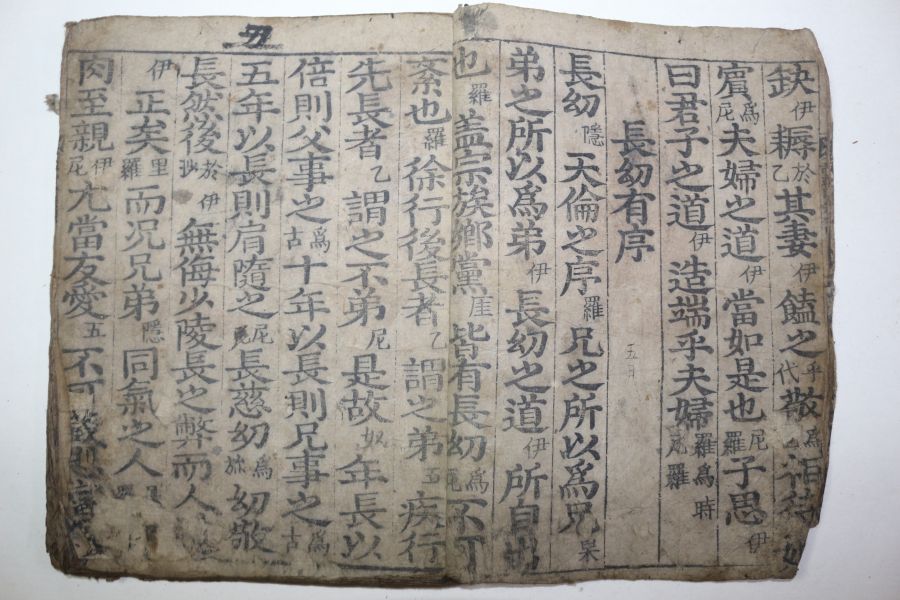 缺伊耨於乙其妻伊饁之乎代敬爲相待
賓爲尼夫婦之道伊當如是也尼羅子思伊
曰君子之道伊造端乎夫婦羅爲時尼羅
長幼有序
長幼隱天倫之序羅兄之所以爲兄果
弟之所以爲弟伊長幼之道伊所自出
也羅盖宗族鄕黨厓皆有長幼爲尼不可
紊也羅徐行後長者乙謂之弟五疾行
先長者乙謂之不弟尼是故奴年長以
倍則父事之爲古十年以長則兄事之爲古
五年以長則肩隨之尼長慈幼爲旀幼敬
長然後於沙伊無侮少陵長之弊而人
伊正矣里羅而况兄弟隱同氣之人
肉至親伊尼尤當友愛五不可